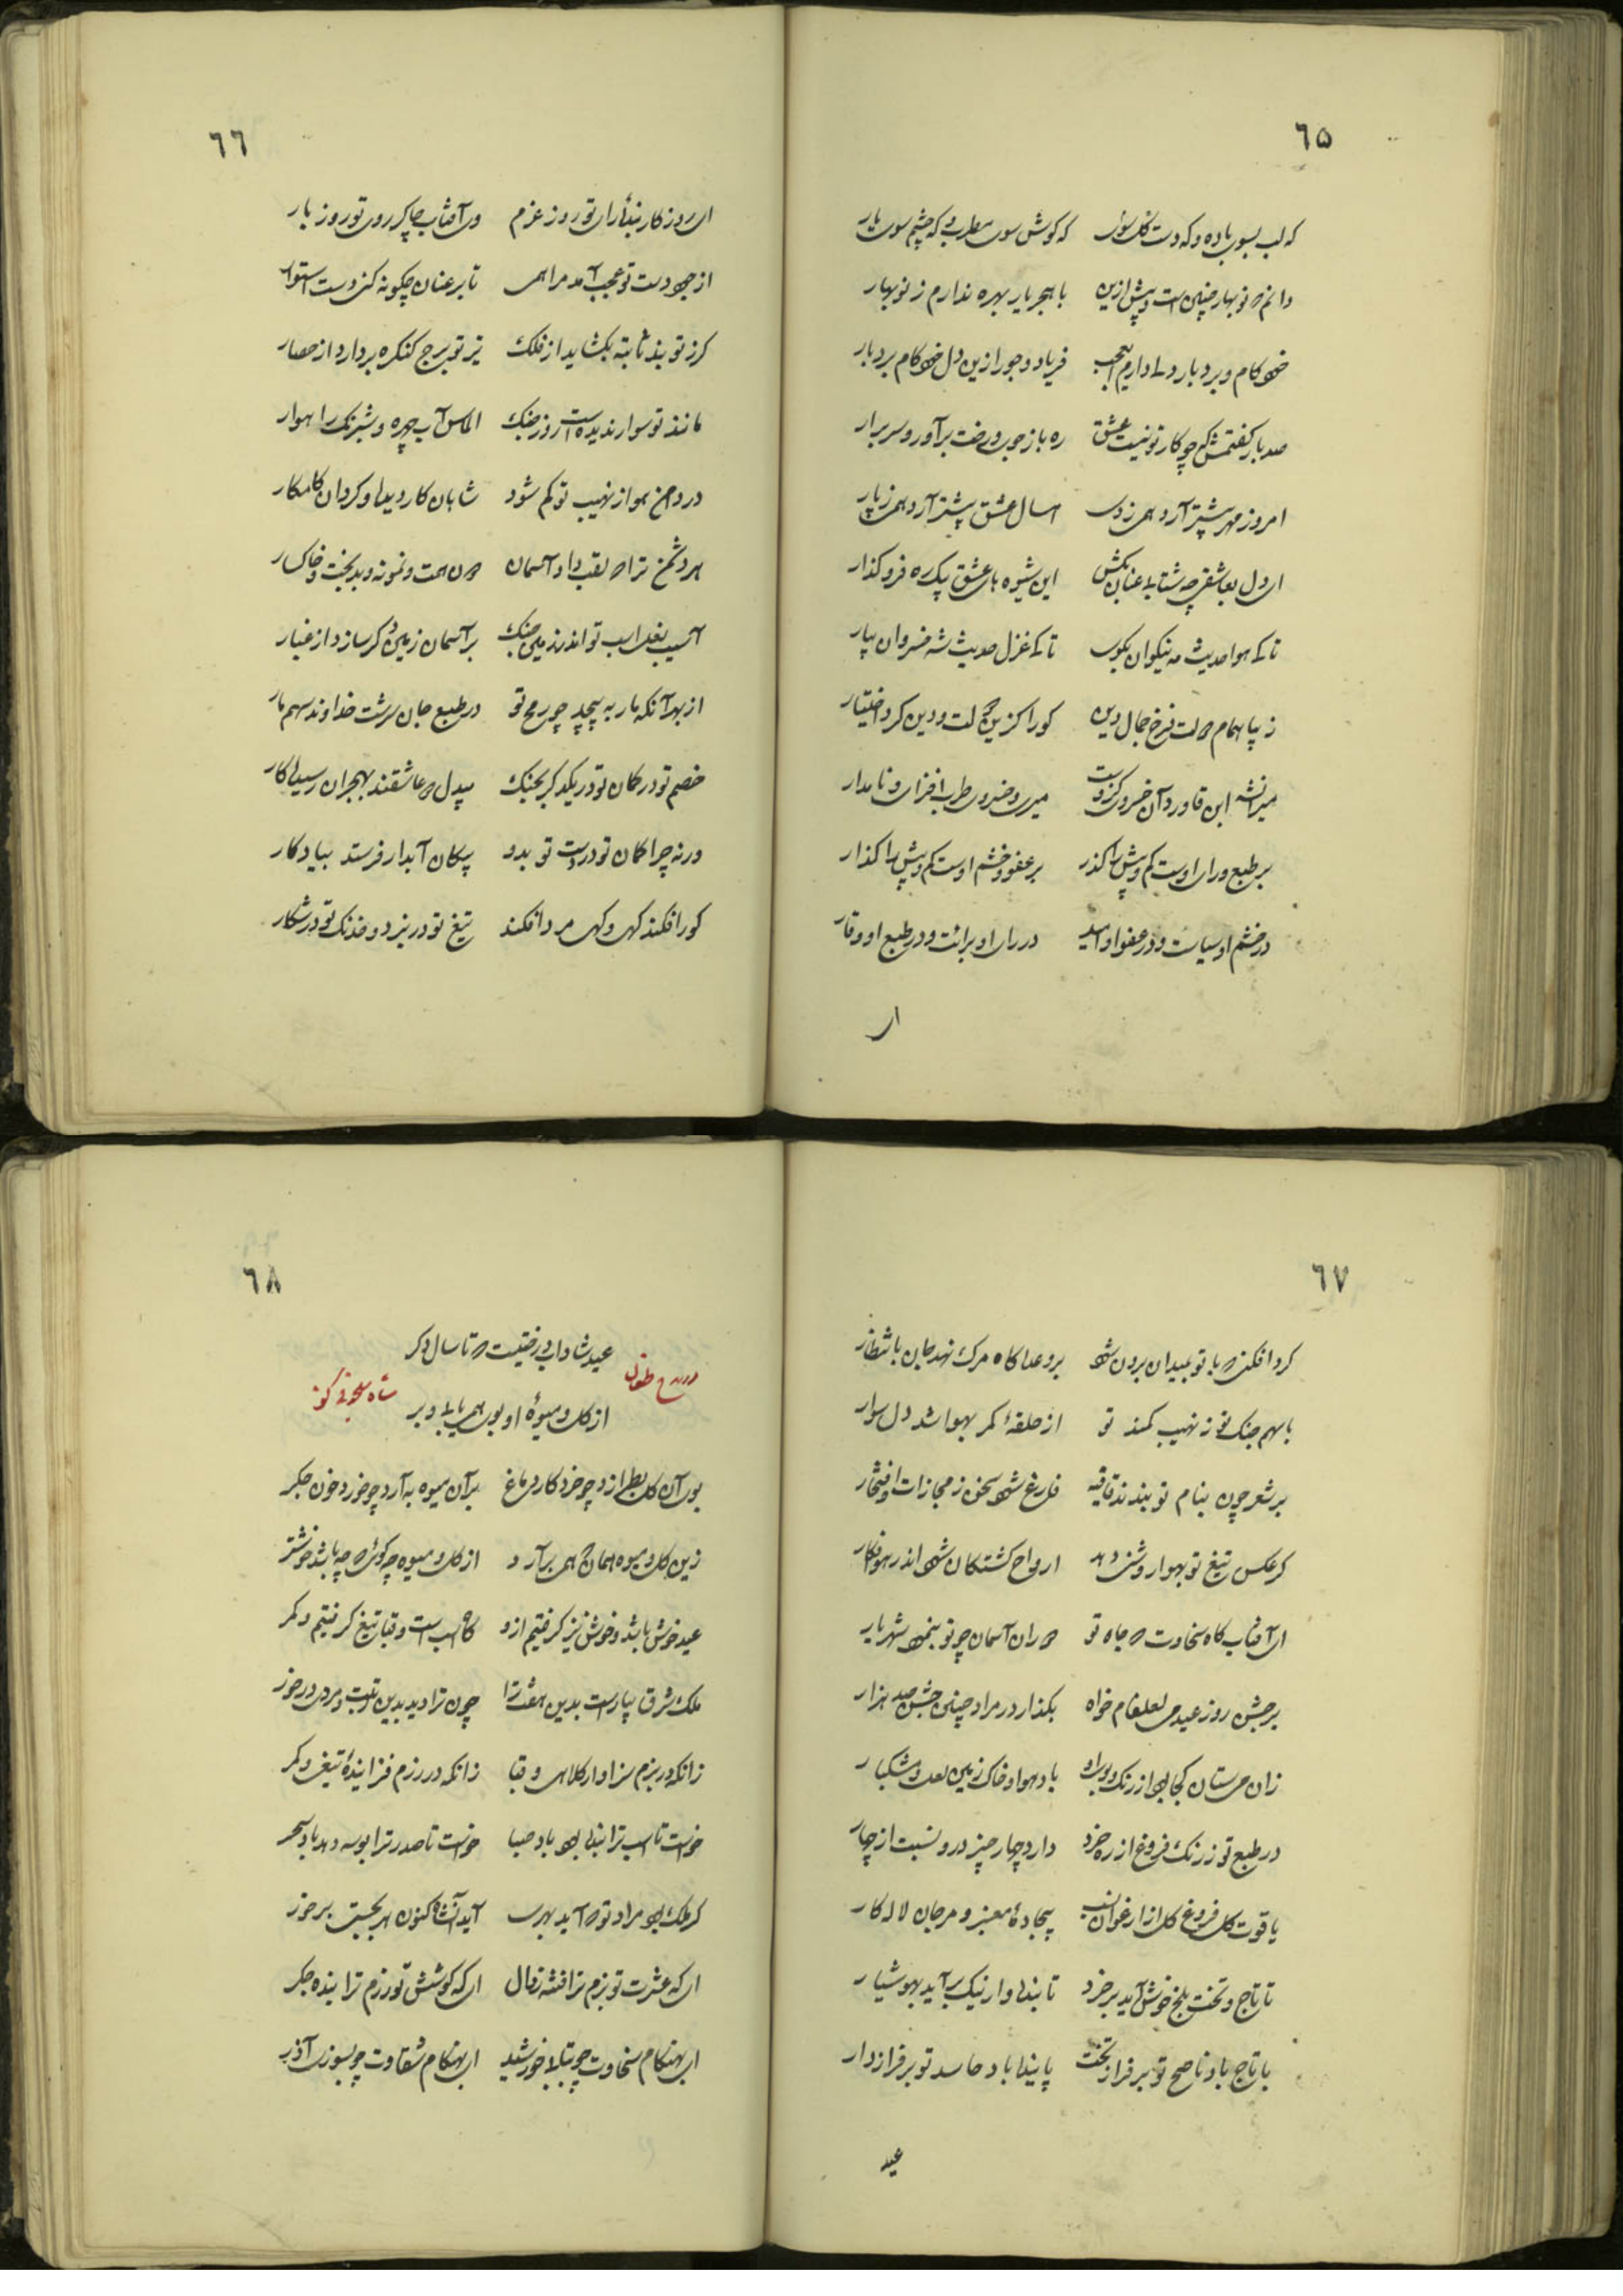 ٦٥
که لب بسوی باده و که دست گل بسوی که گوش سوی مطرب و که چشم سوی یار
دانم که نوبهار چنین است و پیش ازین با هجر یار بهره ندارم ز نوبهار
خودکام و بردبار دلی دارم ای عجب فریاد و جور ازین دل خودکام بردبار
صد بار گفتمش که چو کار تو نیست عشق ره باز جوی و رخت برآور و سر برار
امروز مهر بیشتر آرد همی ز دی امسال عشق بیشتر آرد همی ز پار
ای دل بعاشقی چه شتابی عنان بکش این شیوه های عشق یک ره فرو گذار
تا کی هوا حدیث مه نیکوان بگوی تا کی غزل حدیث شه خسروان بیار
زیبا همام دولت فرخ جمال دین کورا گزین دولت و دین کرد اختیار
میرانشه ابن قاورد آن خسروی کزوست میری و خسروی طرب افزای و نامدار
بر طبع و رای اوست کم و بیش را گذر بر عفو و خشم اوست کم و بیش را گذار
در خشم او سیاست و در عفو او امید در رای او برائت و در طبع او وقار
ای
٦٦
ای روزگار بندهٔ رای تو روز عزم وی آفتاب چاکر روی تو روز بار
از جود دست تو عجب آمد مرا همی تا بر عنان چگونه کنی دست استوار
گرز تو بند ثابته بگشاید از فلک تیر تو برج کنگره بردارد از حصار
مانند تو سوار ندیده است روز جنگ الماس آب چهره و شبرنگ راهوار
در دهن هوا ز نهیب تو گم شود شاهان کاردیده و گردان کامکار
هر دشمن ترا که لقب داد آسمان دون همت و نمونه و بدبخت و خاکسار
آسیب نعل اسب تو اندر زمین جنگ بر آسمان زمین دگر سازد از غبار
از بهر آنکه مار به پیچد چو رمح تو در طبع جان سرشت خداوند سهم مار
خصم تو در کمان تو در یکدگر بجنگ بیدل که عاشقند بهجران رسیده کار
ورنه چرا کمان تو در دست تو بدو پیکان آبدار فرستد بیادگار
گور افکند کهی و کهی مرد افکند تیغ تو در نبرد و خدنگ تو در شکار
٦٧
گرد افکنی که با تو بمیدان برون شود بر وعدا گاه مرگ نهد جان بانتظار
با سهم جنگ تو ز نهیب کمند تو از حلقهٔ کمر بهواشد دل سوار
بر شعر چون بنام تو بندند قافیه فارغ شود سخن ز مجازات و افتخار
گر عکس تیغ تو بهوا روشنی دهد ارواح کشتگان شود اندر هوا فکار
ای آفتاب گاه سخاوت که جاه تو دوران آسمان چو تو ننمود شهریار
بر جشن روز عید می لعلفام خواه بگذار در مراد چنین جشن صد هزار
زان می ستان کجا بود از رنگ و بوی او باد هوا و خاک زمین لعل و مشکبار
در طبع تو ز رنگ فروغ از ره خرد دارد چهار چیز درو نسبت از چهار
یاقوت گل فروغ گل از ارغوان نسب بیجادهٔ معنبر و مرجان لاله کار
تا تاج و تخت بلخ خوش آید بر خرد تا بند و دار نیک برآید بهوشیار
با تاج باد ناصح تو بر فراز تخت پا بند باد حاسد تو بر فراز دار
عید
٦٨
عید شادابدرختیست که تا سال دگر
از گل و میوهٔ او بوی همی یابی و بر
در مدح طغان شاه سلجوقی گوید
بوی آن گل بطرازد چو خرد کار دماغ بر آن میوه به آرد چو خورد خون جگر
زین گل و میوه همان به که همی برآرد از گل و میوه چه گوئی که چه باشد خوشتر
عید خوش باشد و خوش نیز گرفتیم ازو که اسب و قبا تیغ گرفتیم و کمر
ملک شرق بیاراست بدین هفت ترا چون ترا دید بدین رتبت و مردی درخور
زانکه در بزم سزاوار کلاهی و قبا زانکه در رزم فزایندهٔ تیغی و کمر
خواست تا اسب ترا بنده بود باد صبا خواست تا صدر ترا بوسه دهد باد سحر
گر ملک بود مراد تو که آید بهری آید آنشاه کنون بهر بجستن بر خور
ای که عشرت تو بزم ترا فتنه روان ای که کوشش تو رزم ترا بنده جگر
ای بهنگام سخاوت چو بتابد خورشید ای بهنگام شقاوت چو بسوزد آذر